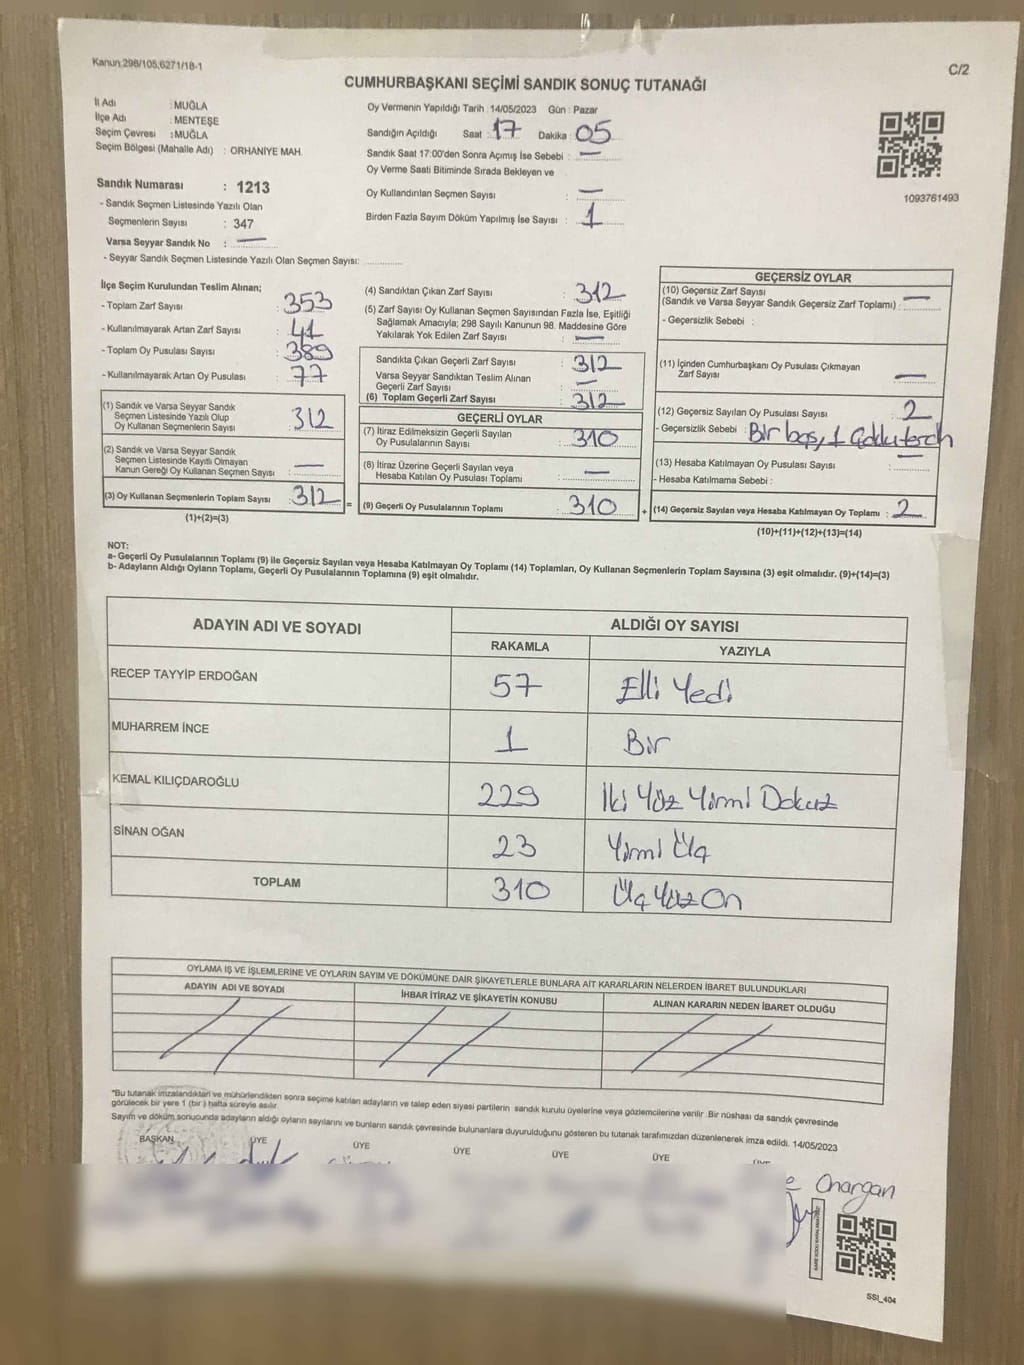 Kanun:298/105;6271/18-1
C/2
CUMHURBAŞKANI SEÇİMİ SANDIK SONUÇ TUTANAĞI
İl Adı : MUĞLA
İlçe Adı : MENTEŞE
Seçim Çevresi : MUĞLA
Seçim Bölgesi (Mahalle Adı) : ORHANİYE MAH.
Oy Vermenin Yapıldığı Tarih : 14/05/2023 Gün : Pazar
Sandığın Açıldığı Saat : 17 Dakika : 05
Sandık Saat 17:00'den Sonra Açımış İse Sebebi : —
Oy Verme Saati Bitiminde Sırada Bekleyen ve
Oy Kullandırılan Seçmen Sayısı : —
Birden Fazla Sayım Döküm Yapılmış İse Sayısı : 1
1093761493
Sandık Numarası : 1213
- Sandık Seçmen Listesinde Yazılı Olan
Seçmenlerin Sayısı : 347
Varsa Seyyar Sandık No : —
- Seyyar Sandık Seçmen Listesinde Yazılı Olan Seçmen Sayısı:
İlçe Seçim Kurulundan Teslim Alınan;
- Toplam Zarf Sayısı : 353
- Kullanılmayarak Artan Zarf Sayısı : 41
- Toplam Oy Pusulası Sayısı : 389
- Kullanılmayarak Artan Oy Pusulası : 77
(1) Sandık ve Varsa Seyyar Sandık
Seçmen Listesinde Yazılı Olup
Oy Kullanan Seçmenlerin Sayısı : 312
(2) Sandık ve Varsa Seyyar Sandık
Seçmen Listesinde Kayıtlı Olmayan
Kanun Gereği Oy Kullanan Seçmen Sayısı : —
(3) Oy Kullanan Seçmenlerin Toplam Sayısı : 312
(1)+(2)=(3)
(4) Sandıktan Çıkan Zarf Sayısı : 312
(5) Zarf Sayısı Oy Kullanan Seçmen Sayısından Fazla İse, Eşitliği
Sağlamak Amacıyla; 298 Sayılı Kanunun 98. Maddesine Göre
Yakılarak Yok Edilen Zarf Sayısı : —
Sandıkta Çıkan Geçerli Zarf Sayısı : 312
Varsa Seyyar Sandıktan Teslim Alınan
Geçerli Zarf Sayısı : —
(6) Toplam Geçerli Zarf Sayısı : 312
GEÇERLİ OYLAR
(7) İtiraz Edilmeksizin Geçerli Sayılan
Oy Pusulalarının Sayısı : 310
(8) İtiraz Üzerine Geçerli Sayılan veya
Hesaba Katılan Oy Pusulası Toplamı : —
= (9) Geçerli Oy Pusulalarının Toplamı : 310
GEÇERSİZ OYLAR
(10) Geçersiz Zarf Sayısı
(Sandık ve Varsa Seyyar Sandık Geçersiz Zarf Toplamı) : —
- Geçersizlik Sebebi :
(11) İçinden Cumhurbaşkanı Oy Pusulası Çıkmayan
Zarf Sayısı : —
(12) Geçersiz Sayılan Oy Pusulası Sayısı : 2
- Geçersizlik Sebebi : Bir boş, 1
(13) Hesaba Katılmayan Oy Pusulası Sayısı : —
- Hesaba Katılmama Sebebi :
+ (14) Geçersiz Sayılan veya Hesaba Katılmayan Oy Toplamı : 2
(10)+(11)+(12)+(13)=(14)
NOT:
a- Geçerli Oy Pusulalarının Toplamı (9) ile Geçersiz Sayılan veya Hesaba Katılmayan Oy Toplamı (14) Toplamları, Oy Kullanan Seçmenlerin Toplam Sayısına (3) eşit olmalıdır. (9)+(14)=(3)
b- Adayların Aldığı Oyların Toplamı, Geçerli Oy Pusulalarının Toplamına (9) eşit olmalıdır.
ADAYIN ADI VE SOYADI
ALDIĞI OY SAYISI
RAKAMLA YAZIYLA
RECEP TAYYİP ERDOĞAN 57 Elli Yedi
MUHARREM İNCE 1 Bir
KEMAL KILIÇDAROĞLU 229 İki Yüz Yirmi Dokuz
SİNAN OĞAN 23 Yirmi Üç
TOPLAM 310 Üç Yüz On
OYLAMA İŞ VE İŞLEMLERİNE VE OYLARIN SAYIM VE DÖKÜMÜNE DAİR ŞİKAYETLERLE BUNLARA AİT KARARLARIN NELERDEN İBARET BULUNDUKLARI
ADAYIN ADI VE SOYADI İHBAR İTİRAZ VE ŞİKAYETİN KONUSU ALINAN KARARIN NEDEN İBARET OLDUĞU
*Bu tutanak imzalandıktan ve mühürlendikten sonra seçime katılan adayların ve talep eden siyasi partilerin sandık kurulu üyelerine veya gözlemcilerine verilir. Bir nüshası da sandık çevresinde
görülecek bir yere 1 (bir) hafta süreyle asılır.
Sayım ve döküm sonucunda adayların aldığı oyların sayılarını ve bunların sandık çevresinde bulunanlara duyurulduğunu gösteren bu tutanak tarafımızdan düzenlenerek imza edildi. 14/05/2023
BAŞKAN ÜYE ÜYE ÜYE ÜYE ÜYE ÜYE
SSI_404